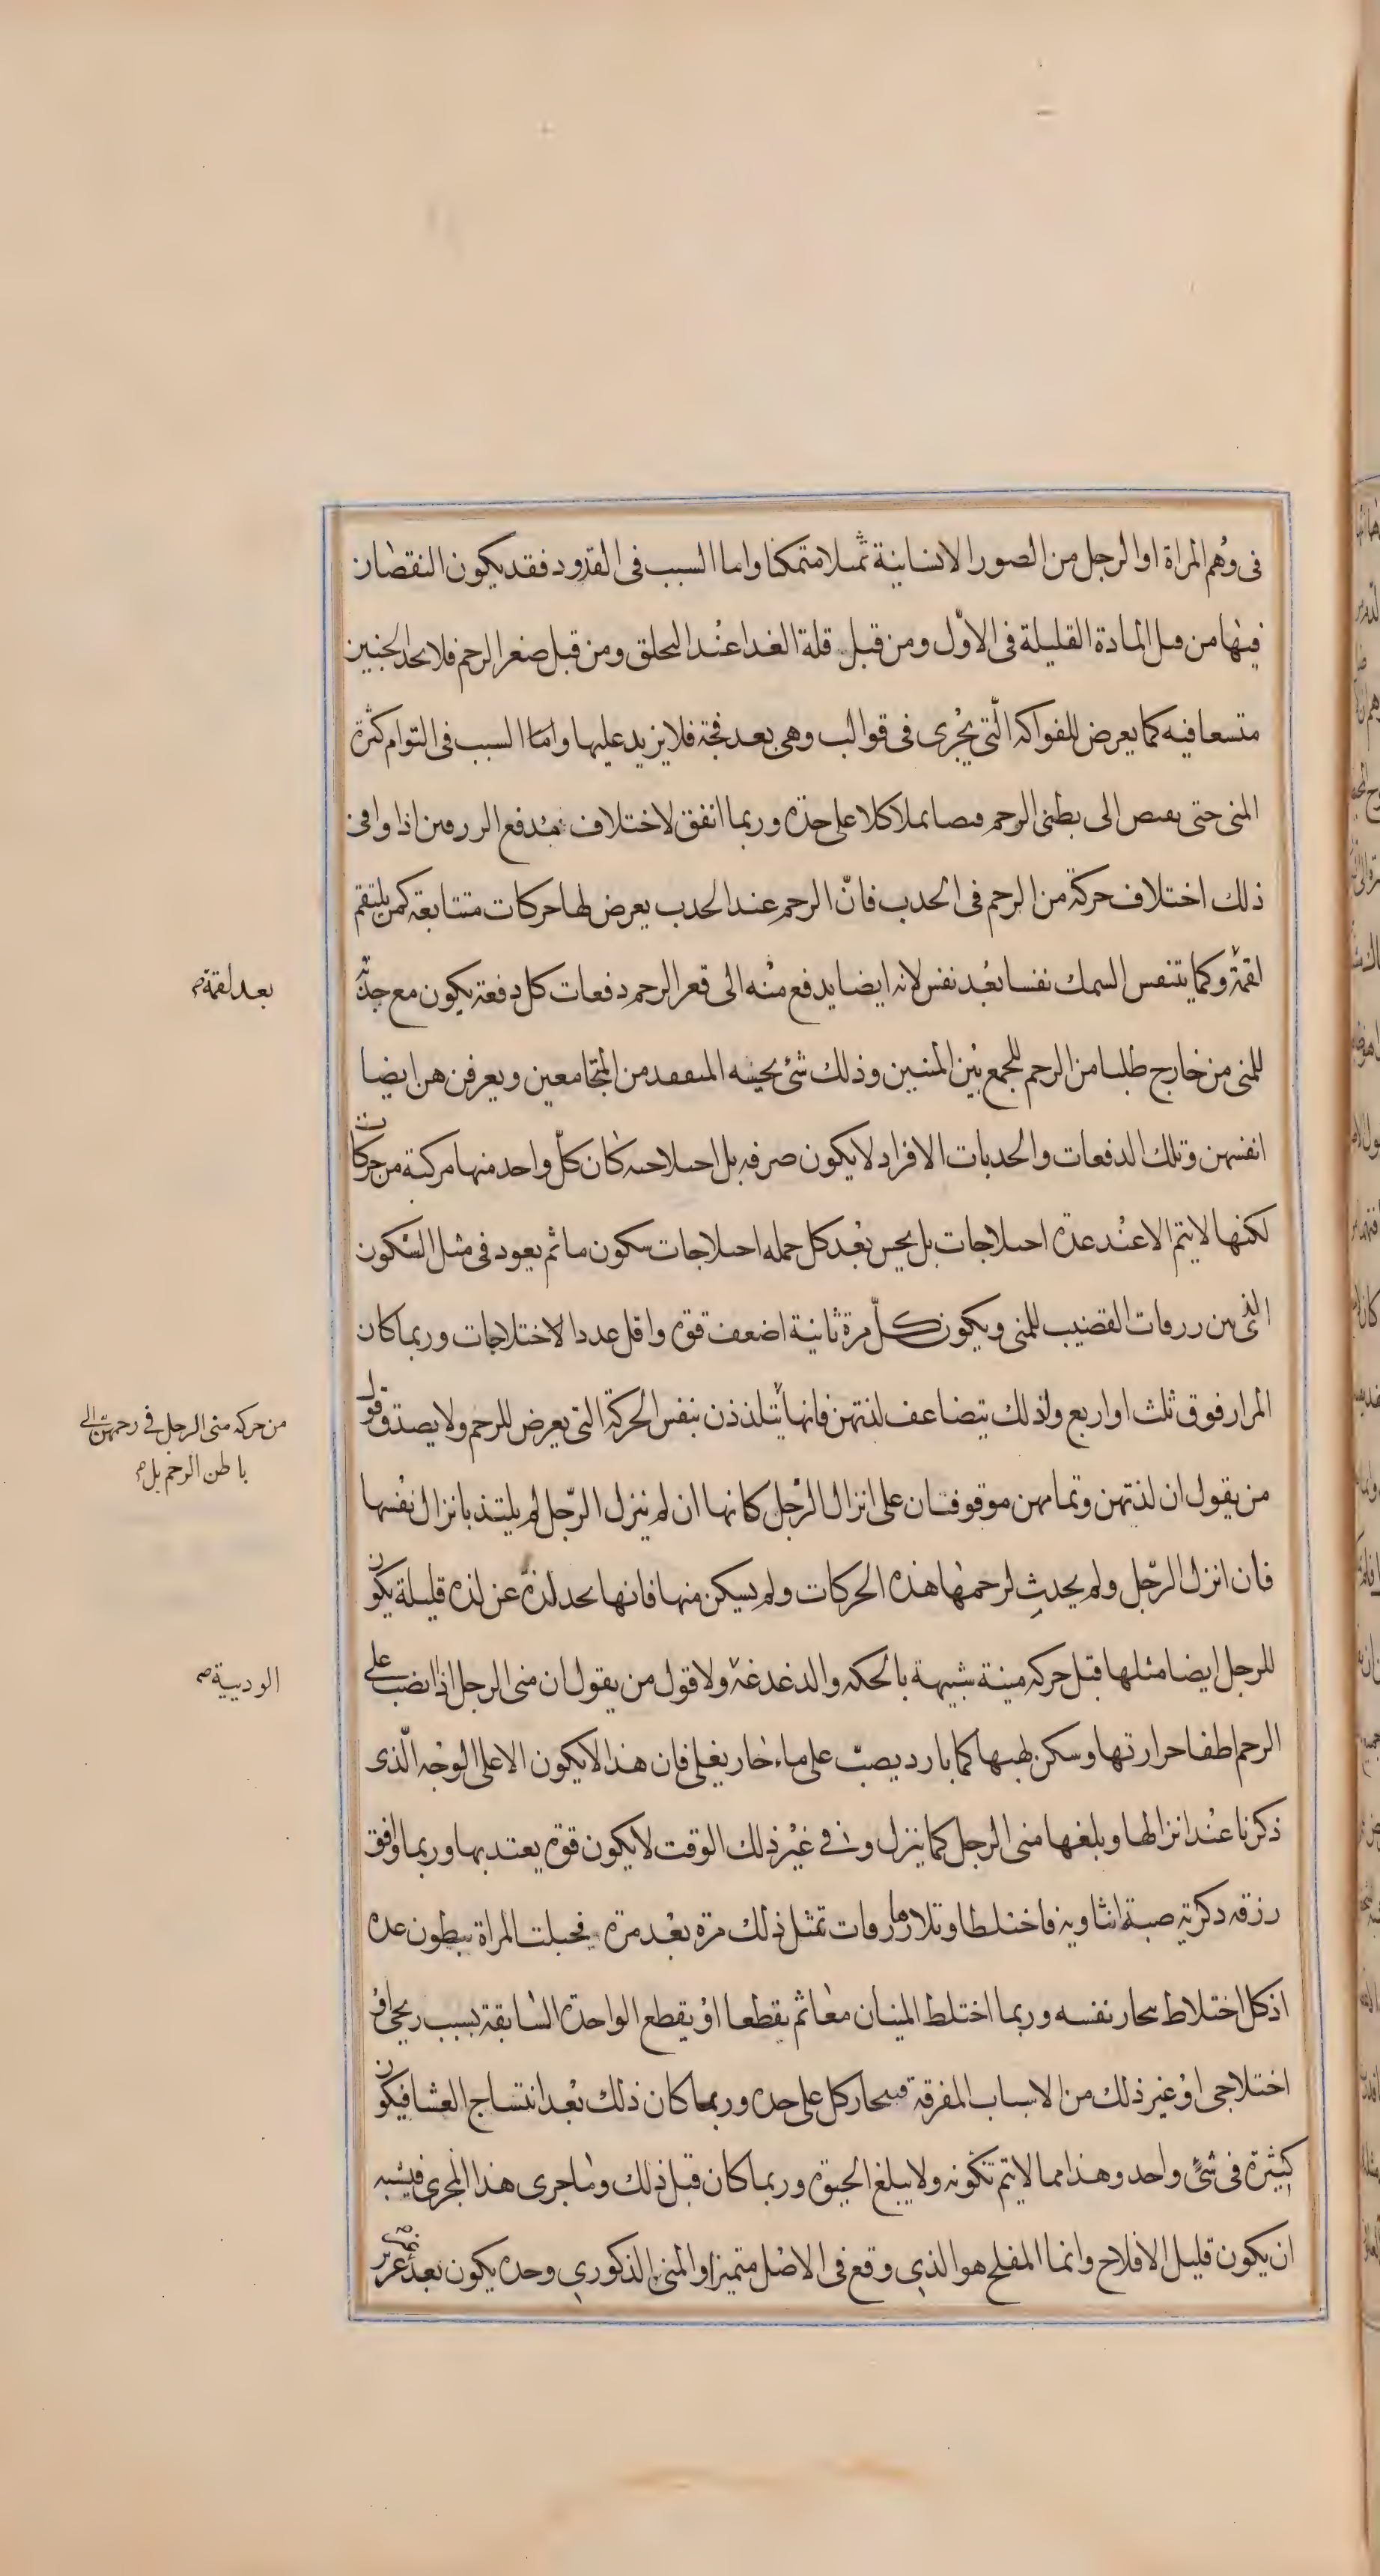 فى وهم المراة او الرجل من الصور الانسانية تمثلا متمكنا واما السبب فى القدود فقد يكون النقصان
فيها من قبل المادة القليلة فى الاول ومن قبل قلة الغدا عند التخلق ومن قبل صغر الرحم فلا يجد الجنين
متسعا فيه كما يعرض للفواكه التى يجرى فى قوالب وهى بعد فجة فلا يزيد عليها واما السبب فى التوام كثرة
المنى حتى الى بطنى الرحم كلا على حدة وربما اتفق لاختلاف مدفع اذا وافى
ذلك اختلاف حركة من الرحم فى الجذب فان الرحم عند الجذب يعرض لها حركات متتابعة كمن يلتقم
لقمة وكما يتنفس السمك نفسا بعد نفس لانه ايضا يدفع منه الى قعر الرحم دفعات كل دفعة يكون مع جذبه
للمنى من خارج طلبا من الرحم للجمع بين المنيين وذلك شئ المتفقد من المتجامعين ويعرفن هن ايضا
انفسهن وتلك الدفعات والجذبات الافراد لا يكون صرفه بل اختلاجيه كان كل واحد منها مركبة من حركات
لكنها لا يتم الا عند عدة اختلاجات بل يحس بعد كل جمله اختلاجات سكون ما ثم يعود فى مثل السكون
الذى بين زرقات القضيب للمنى ويكون كل مرة ثانية اضعف قوة واقل عدد الاختلاجات وربما كان
المرار فوق ثلث او اربع ولذلك يتضاعف لذتهن فانها يتلذذن بنفس الحركة التى يعرض للرحم ولا يصدق قول
من يقول ان لذتهن وتمامهن موقوفتان على انزال الرجل كانها ان لم ينزل الرجل لم يلتذ بانزال نفسها
فان انزل الرجل ولم يحدث لرحمها هذه الحركات ولم يسكن منها فانها يجد لذة عن لذه قليلة يكون
للرجل ايضا مثلها قبل حركه منية شبيهة بالحكه والدغدغة ولا قول من يقول ان منى الرجل اذا انصب على
الرحم اطفا حرارتها وسكن لهيبها كما بارد يصب على ماء حار يغلى فان هذا لا يكون الا على الوجه الذى
ذكرنا عند انزالها وبلغها منى الرجل كما ينزل وفى غير ذلك الوقت لا يكون قوة يعتد بها وربما وافق
زرقه ذكرية صبة انثاويه فاختلطا وتلاها زروقات تمثل ذلك مرة بعد مرة فحبلت المراة ببطون عده
اذ كل اختلاط نفسه وربما اختلط المنيان معا ثم يقطعا او يقطع الواحدة السابقة بسبب ريحى او
اختلاجى او غير ذلك من الاسباب المفرقة كل على حده وربما كان ذلك بعد انتساج الغشا فيكون
كثيرة فى شئ واحد وهذا مما لا يتم تكونه ولا يبلغ الحيوة وربما كان قبل ذلك وما جرى هذا المجرى فيشبه
ان يكون قليل الافلاح وانما المفلح هو الذى وقع فى الاصل متميزا والمنى الذكورى وحده يكون بعد غرير
بعد لقمة صح
من حركه منى الرجل فى رحمهن الى
باطن الرحم بل صح
الودىية صح